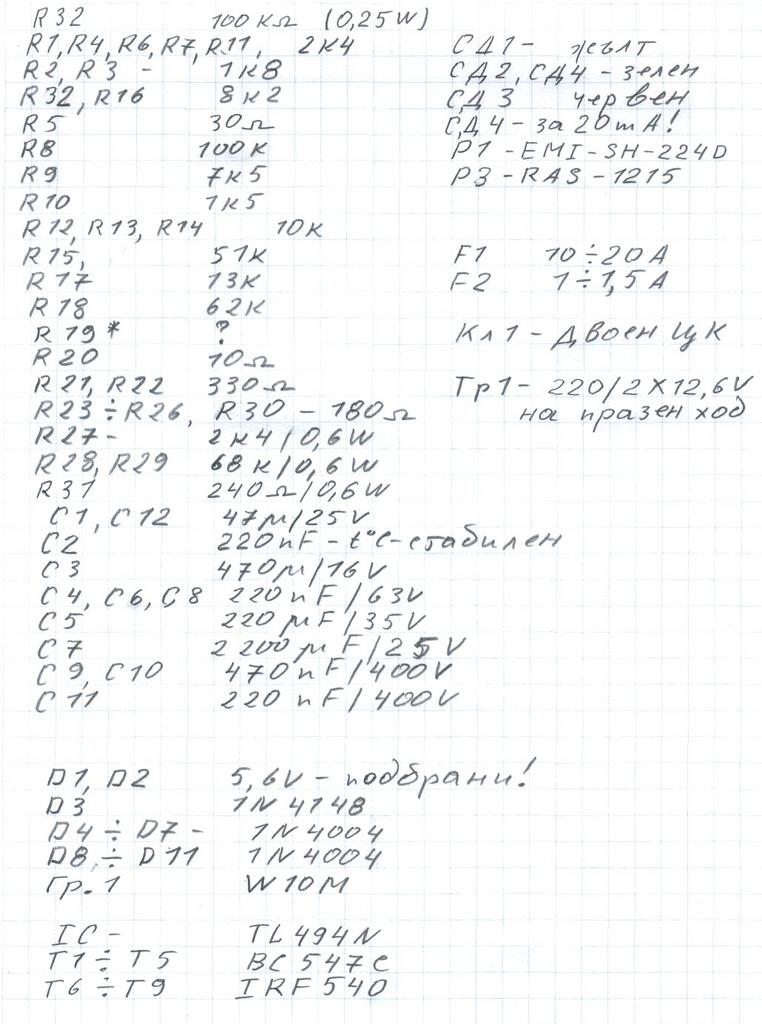 R32 100 KΩ (0,25W)
R1, R4, R6, R7, R11, 2K4
R2, R3 - 1K8
R32, R16 8K2
R5 30Ω
R8 100K
R9 7K5
R10 1K5
R12, R13, R14 10K
R15, 51K
R17 13K
R18 62K
R19* ?
R20 10Ω
R21, R22 330Ω
R23 ÷ R26, R30 - 180Ω
R27 - 2K4 / 0,6W
R28, R29 68K / 0,6W
R31 240Ω / 0,6W
C1, C12 47μ/25V
C2 220nF - t°C-стабилен
C3 470μ/16V
C4, C6, C8 220nF/63V
C5 220μF/35V
C7 2200μF/25V
C9, C10 470nF/400V
C11 220nF/400V
D1, D2 5,6V - подбрани!
D3 1N4148
D4 ÷ D7 - 1N4004
D8, ÷ D11 1N4004
Гр.1 W10M
IC - TL494N
T1 ÷ T5 BC547C
T6 ÷ T9 IRF540
СД1 - жълт
СД2, СД4 - зелен
СД3 червен
СД4 - за 20mA!
P1 - EMI-SH-224D
P3 - RAS-1215
F1 10 ÷ 20A
F2 1 ÷ 1,5A
Кл1 - двоен ЦК
Тр1 - 220/2X12,6V
на празен ход